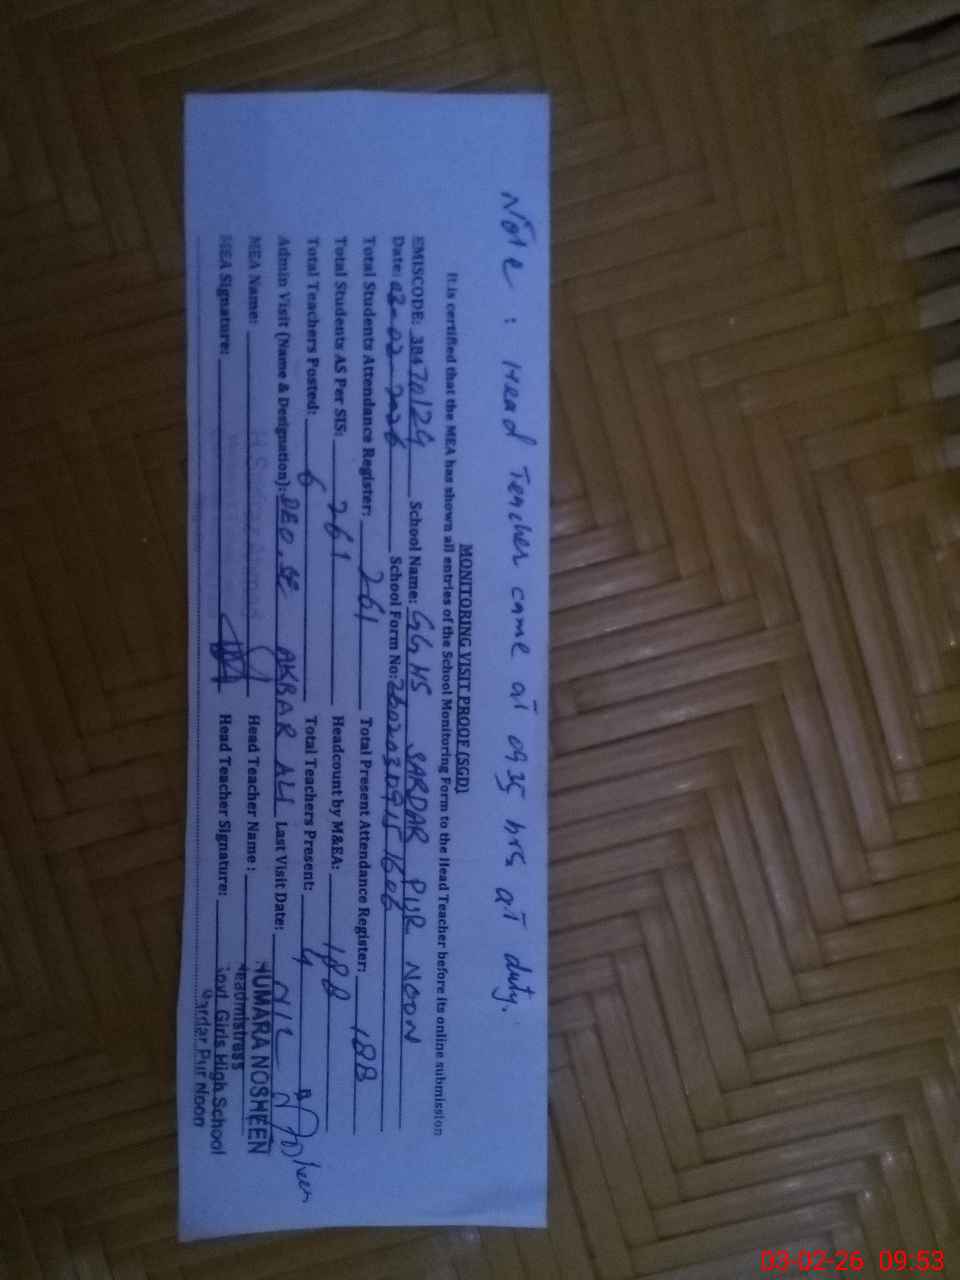 Note : Head Teacher came at 0935 hrs at duty.
MONITORING VISIT PROOF (SGD)
It is certified that the MEA has shown all entries of the School Monitoring Form to the Head Teacher before its online submission
EMISCODE: 38470129 School Name: GGHS SARDAR PUR NOON
Date: 03-02-2026 School Form No: 26020309151606
Total Students Attendance Register: 261 Total Present Attendance Register: 188
Total Students AS Per SIS: 261 Headcount by M&EA: 188
Total Teachers Posted: 6 Total Teachers Present: 4
Admin Visit (Name & Designation): DEO. SE AKBAR ALI Last Visit Date: NIL
MEA Name: Head Teacher Name: HUMARA NOSHEEN
Headmistress
MEA Signature: Head Teacher Signature: Govt. Girls High School
Sardar Pur Noon
03-02-26 09:53